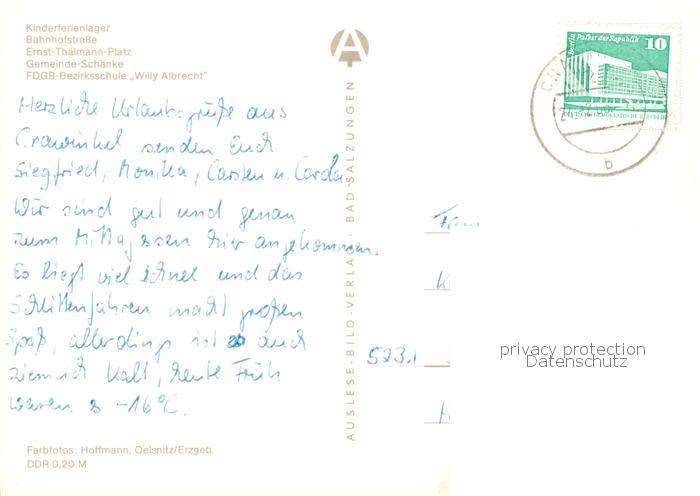 Kinderferienlager
Bahnhofstraße
Ernst-Thälmann-Platz
Gemeinde-Schänke
FDGB-Bezirksschule „Willy Albrecht"
Herzliche Urlaubsgrüße aus
Crawinkel senden Euch
Siegfried, Monika, Carsten u. Carola
Wir sind gut und genau
zum Mittagessen hier angekommen.
Es liegt viel Schnee und das
Schlittenfahren macht großen
Spaß, allerdings ist es auch
ziemlich kalt, heute Früh
waren s -16°C.
Farbfotos: Hoffmann, Oelsnitz/Erzgeb.
DDR 0,20 M
AUSLESE-BILD-VERLAG · BAD SALZUNGEN
Berlin Palast der Republik
10
DEUTSCHE DEMOKRATISCHE REPUBLIK
b
Fam
523.1
privacy protection
Datenschutz